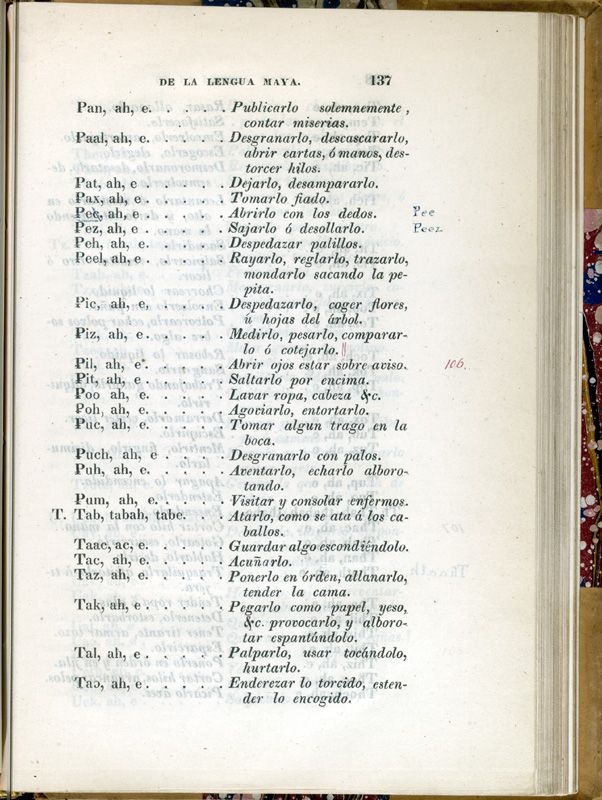 DE LA LENGUA MAYA. 137
Pan, ah, e. . . . . . Publicarlo solemnemente,
contar miserias.
Paal, ah, e. . . . . . Desgranarlo, descascararlo,
abrir cartas, ó manos, des-
torcer hilos.
Pat, ah, e . . . . . . Dejarlo, desampararlo.
Pax, ah, e. . . . . . Tomarlo fiado.
Pec, ah, e . . . . . . Abrirlo con los dedos. Pee
Pez, ah, e . . . . . . Sajarlo ó desollarlo. Peez
Peh, ah, e . . . . . . Despedazar palillos.
Peel, ah, e . . . . . . Rayarlo, reglarlo, trazarlo,
mondarlo sacando la pe-
pita.
Pic, ah, e. . . . . . Despedazarlo, coger flores,
ú hojas del árbol.
Piz, ah, e. . . . . . Medirlo, pesarlo, comparar-
lo ó cotejarlo.
Pil, ah, e. . . . . . Abrir ojos estar sobre aviso. 106.
Pit, ah, e . . . . . . Saltarlo por encima.
Poo ah, e. . . . . . Lavar ropa, cabeza &c.
Poh, ah, e. . . . . . Agoviarlo, entortarlo.
Puc, ah, e. . . . . . Tomar algun trago en la
boca.
Puch, ah, e . . . . . Desgranarlo con palos.
Puh, ah, e. . . . . . Aventarlo, echarlo alboro-
tando.
Pum, ah, e. . . . . . Visitar y consolar enfermos.
T. Tab, tabah, tabe. . . Atarlo, como se ata á los ca-
ballos.
Taac, ac, e. . . . . . Guardar algo escondiéndolo.
Tac, ah, e. . . . . . Acuñarlo.
Taz, ah, e. . . . . . Ponerlo en órden, allanarlo,
tender la cama.
Tak, ah, e . . . . . . Pegarlo como papel, yeso,
&c. provocarlo, y alboro-
tar espantándolo.
Tal, ah, e . . . . . . Palparlo, usar tocándolo,
hurtarlo.
Tao, ah, e . . . . . . Enderezar lo torcido, esten-
der lo encogido.